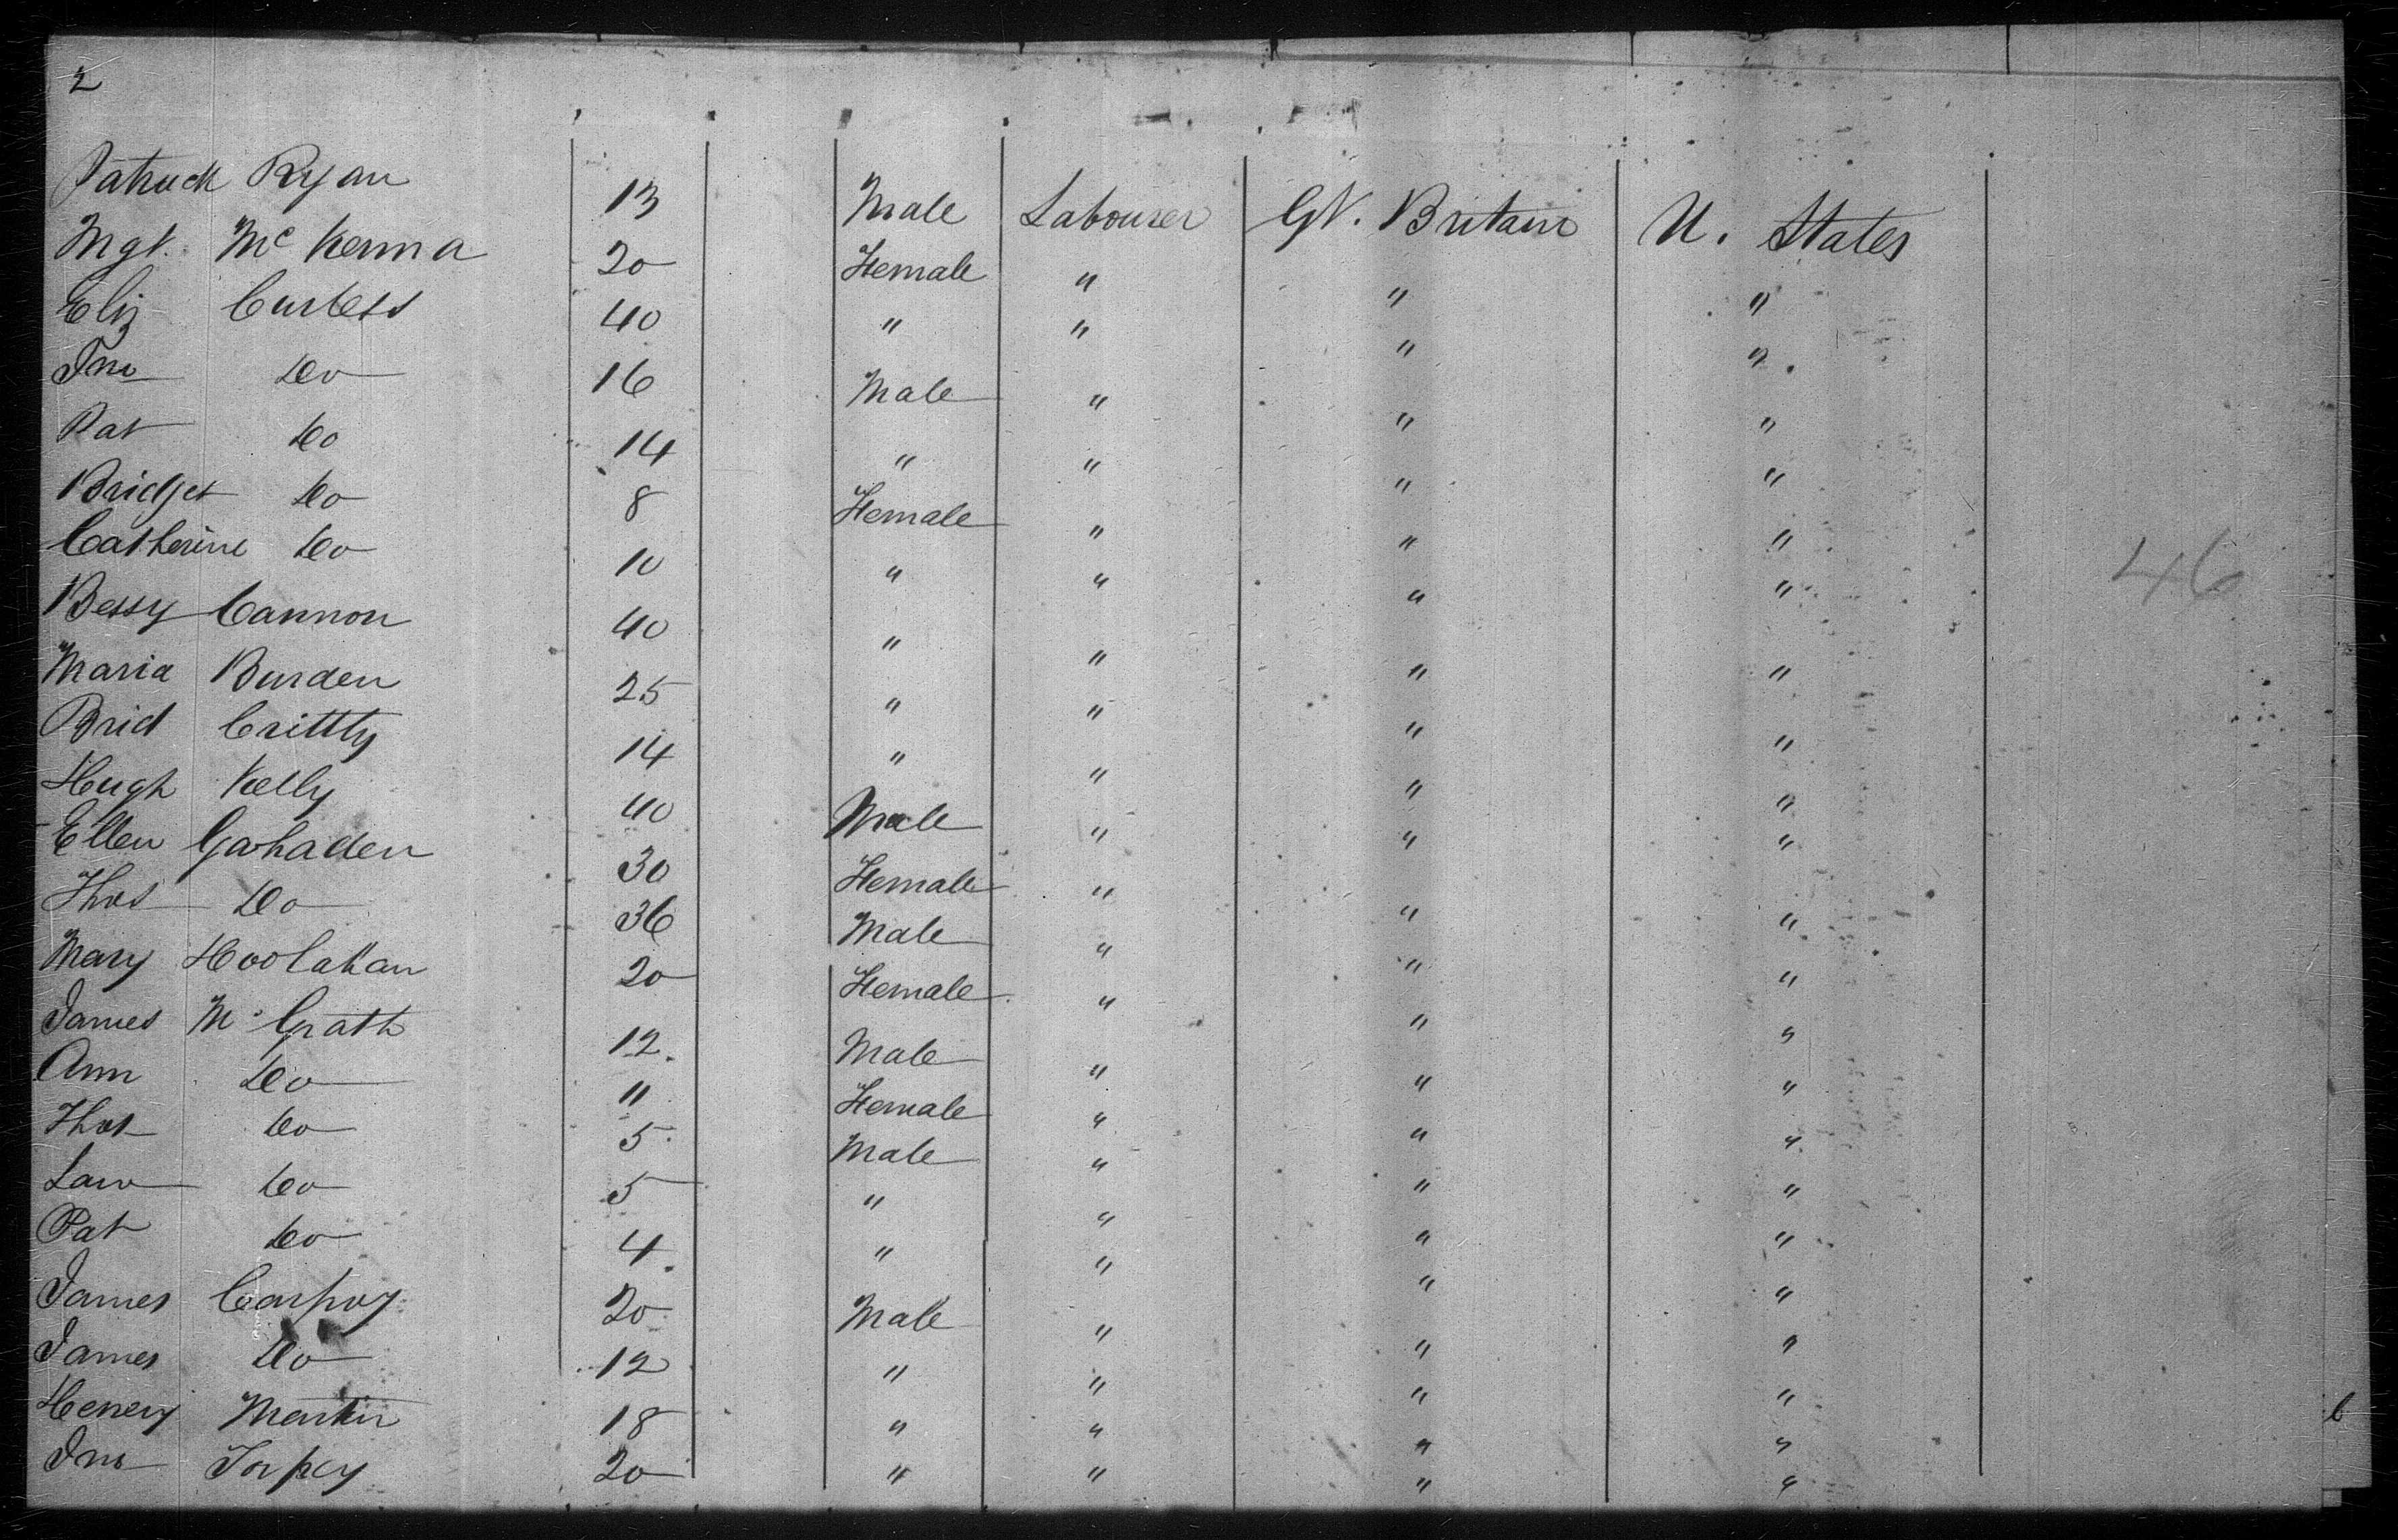 2
Patrick Ryan 13 Male Labourer Gt. Britain U. States
Mgt. Mc Kenna 20 Female " " "
Eliz Curtess 40 " " " "
Jno Do 16 Male " " "
Pat Do 14 " " " "
Bridget Do 8 Female " " "
Catherine Do 10 " " " "
Bessy Cannon 40 " " " "
Maria Burden 25 " " " "
Brid Crittty 14 " " " "
Hugh Kelly 40 Male " " "
Ellen Gahaden 30 Female " " "
Thos Do 36 Male " " "
Mary Hoolahan 20 Female " " "
James Mc Grath 12 Male " " "
Ann Do 11 Female " " "
Thos Do 5 Male " " "
Law Do 5 " " " "
Pat Do 4 " " " "
James Carpoy 20 Male " " "
James Do 12 " " " "
Henery Martin 18 " " " "
Jno Torpey 20 " " " "
46
6